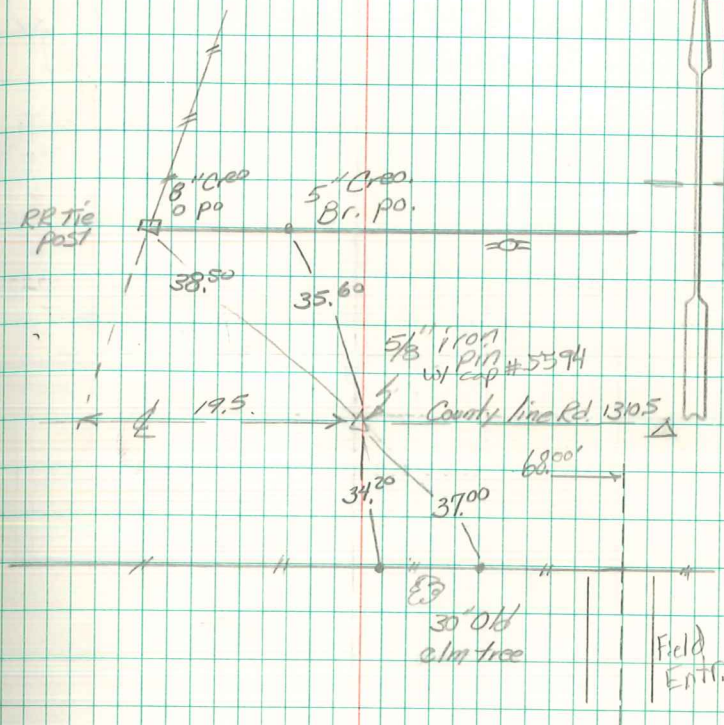 8" Creo
o po
5" Creo.
Br. po.
RR Tie
post
38.50
35.60
5/8" iron
pin
w/ cap #5594
19.5.
County line Rd. 1310.5
68.00'
34.20
37.00
30" Old
elm tree
Field
Entr.